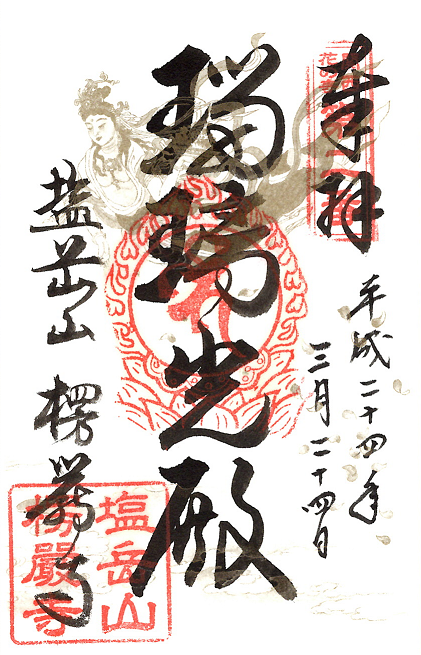 奉拝
平成二十四年
三月二十四日
瑠璃光殿
塩岳山 楞嚴寺
塩岳山
楞嚴寺